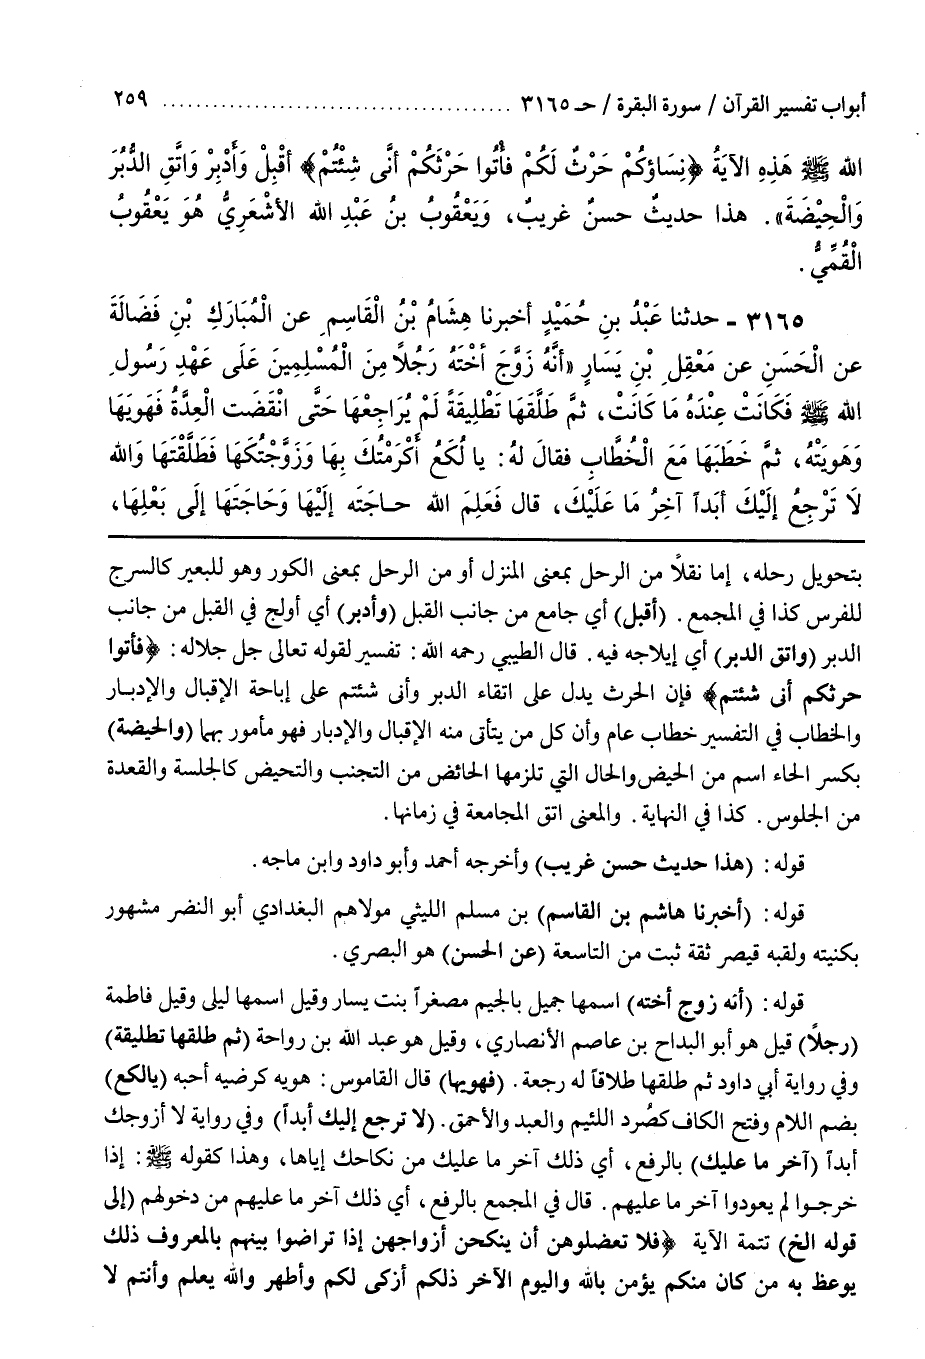 أبواب تفسير القرآن / سورة البقرة / حـ ٣١٦٥ ........................................ ٢٥٩
الله ﷺ هَذِهِ الآيَةُ ﴿نِسَاؤكُمْ حَرْثٌ لَكُمْ فأْتُوا حَرْثَكُمْ أنَّى شِئْتُمْ﴾ أقْبِلْ وَأَدْبِرْ وَاتَّقِ الدُّبُرَ
وَالْحِيْضَةَ». هذا حديثٌ حسنٌ غريبٌ، وَيَعْقُوبُ بنُ عَبْدِ الله الأشْعَرِيُّ هُوَ يَعْقُوبُ
الْقُمِّيُّ.
٣١٦٥ ـ حدثنا عَبْدُ بنِ حُمَيْدٍ أخبرنا هِشَامُ بْنُ الْقَاسِمِ عن الْمُبَارَكِ بْنِ فَضَالَةَ
عن الْحَسَنِ عن مَعْقِلِ بْنِ يَسَارٍ «أنَّهُ زَوَّجَ أخْتَهُ رَجُلاً مِنَ الْمُسْلِمِينَ عَلَى عَهْدِ رَسُولِ
الله ﷺ فَكَانَتْ عِنْدَهُ مَا كَانَتْ، ثمَّ طَلَّقَهَا تَطْلِيقَةً لَمْ يُرَاجِعْهَا حَتَّى انْقَضَت الْعِدَّةُ فَهَوِيَهَا
وَهَوِيَتْهُ، ثمَّ خَطَبَهَا مَعَ الْخُطَّابِ فقالَ لهُ: يا لُكَعُ أكْرَمْتُكَ بِهَا وَزَوَّجْتُكَهَا فَطَلَّقْتَهَا وَالله
لاَ تَرْجِعُ إلَيْكَ أبَداً آخِرُ مَا عَلَيْكَ، قال فَعَلِمَ الله حـاجَتَه إلَيْهَا وَحَاجَتَهَا إلَى بَعْلِهَا،
بتحويل رحله، إما نقلاً من الرحل بمعنى المنزل أو من الرحل بمعنى الكور وهو للبعير كالسرج
للفرس كذا في المجمع. (أقبل) أي جامع من جانب القبل (وأدبر) أي أولج في القبل من جانب
الدبر (واتق الدبر) أي إيلاجه فيه. قال الطيبي رحمه الله: تفسير لقوله تعالى جل جلاله: ﴿فأتوا
حرثكم أنى شئتم﴾ فإن الحرث يدل على اتقاء الدبر وأنى شئتم على إباحة الإقبال والإدبار
والخطاب في التفسير خطاب عام وأن كل من يتأتى منه الإقبال والإدبار فهو مأمور بهما (والحيضة)
بكسر الحاء اسم من الحيض والحال التي تلزمها الحائض من التجنب والتحيض كالجلسة والقعدة
من الجلوس. كذا في النهاية. والمعنى اتق المجامعة في زمانها.
قوله: (هذا حديث حسن غريب) وأخرجه أحمد وأبو داود وابن ماجه.
قوله: (أخبرنا هاشم بن القاسم) بن مسلم الليثي مولاهم البغدادي أبو النضر مشهور
بكنيته ولقبه قيصر ثقة ثبت من التاسعة (عن الحسن) هو البصري.
قوله: (أنه زوج أخته) اسمها جميل بالجيم مصغراً بنت يسار وقيل اسمها ليلى وقيل فاطمة
(رجلاً) قيل هو أبو البداح بن عاصم الأنصاري، وقيل هو عبد الله بن رواحة (ثم طلقها تطليقة)
وفي رواية أبي داود ثم طلقها طلاقاً له رجعة. (فهويها) قال القاموس: هويه كرضيه أحبه (يالكع)
بضم اللام وفتح الكاف كصُرد اللئيم والعبد والأحمق. (لا ترجع إليك أبداً) وفي رواية لا أزوجك
أبداً (آخر ما عليك) بالرفع، أي ذلك آخر ما عليك من نكاحك إياها، وهذا كقوله ﷺ: إذا
خرجـوا لم يعودوا آخر ما عليهم. قال في المجمع بالرفع، أي ذلك آخر ما عليهم من دخولهم (إلى
قوله الخ) تتمة الآية ﴿فلا تعضلوهن أن ينكحن أزواجهن إذا تراضوا بينهم بالمعروف ذلك
يوعظ به من كان منكم يؤمن بالله واليوم الآخر ذلكم أزكى لكم وأطهر والله يعلم وأنتم لا